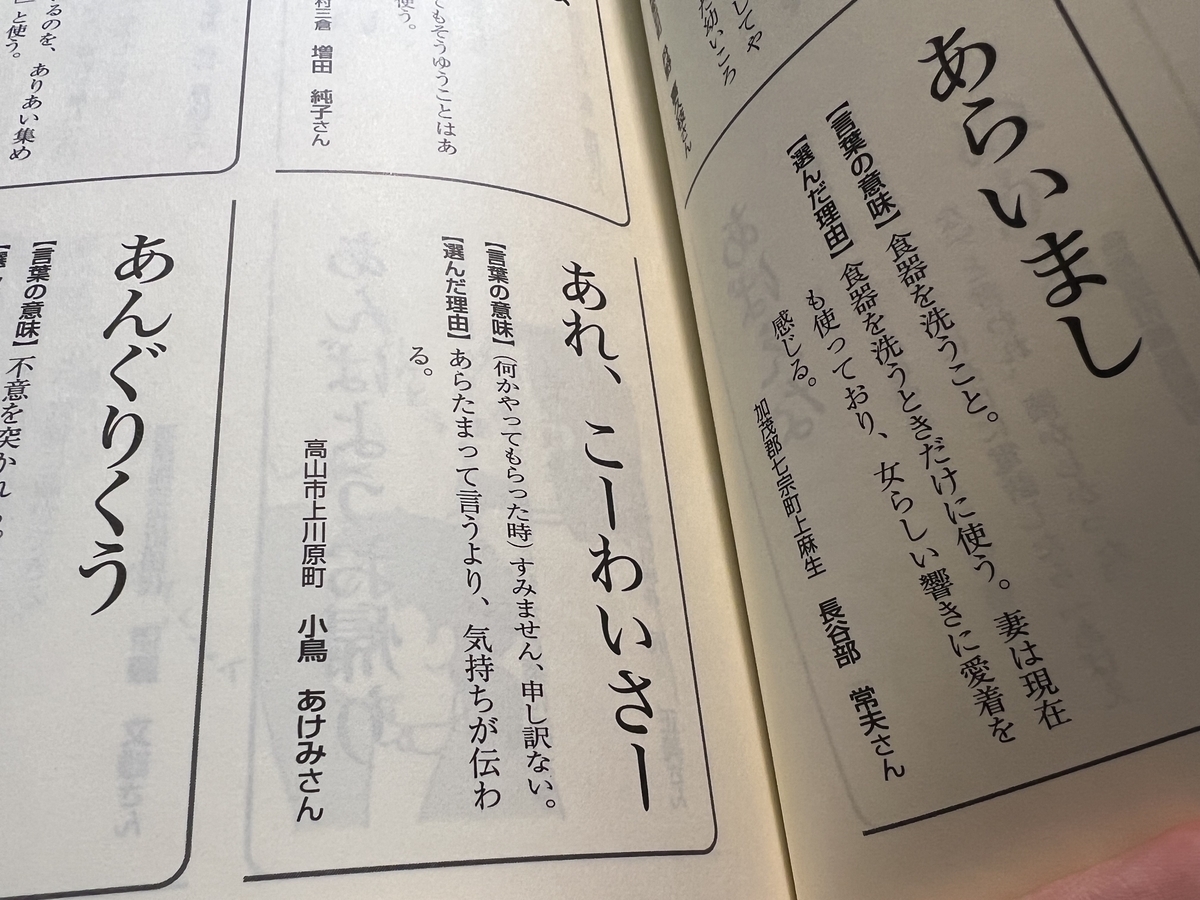 あらいまし
【言葉の意味】食器を洗うこと。
【選んだ理由】食器を洗うときだけに使う。妻は現在
も使っており、女らしい響きに愛着を
感じる。
加茂郡七宗町上麻生　長谷部　常夫さん
してや
た幼いころ
てもそうゆうことはあ
使う。
村三倉　増田　純子さん
あれ、こーわいさー
【言葉の意味】(何かやってもらった時)すみません、申し訳ない。
【選んだ理由】あらたまって言うより、気持ちが伝わ
る。
高山市上川原町　小鳥　あけみさん
るのを、ありあい集め
」と使う。
あんぐりくう
【言葉の意味】不意を突かれ